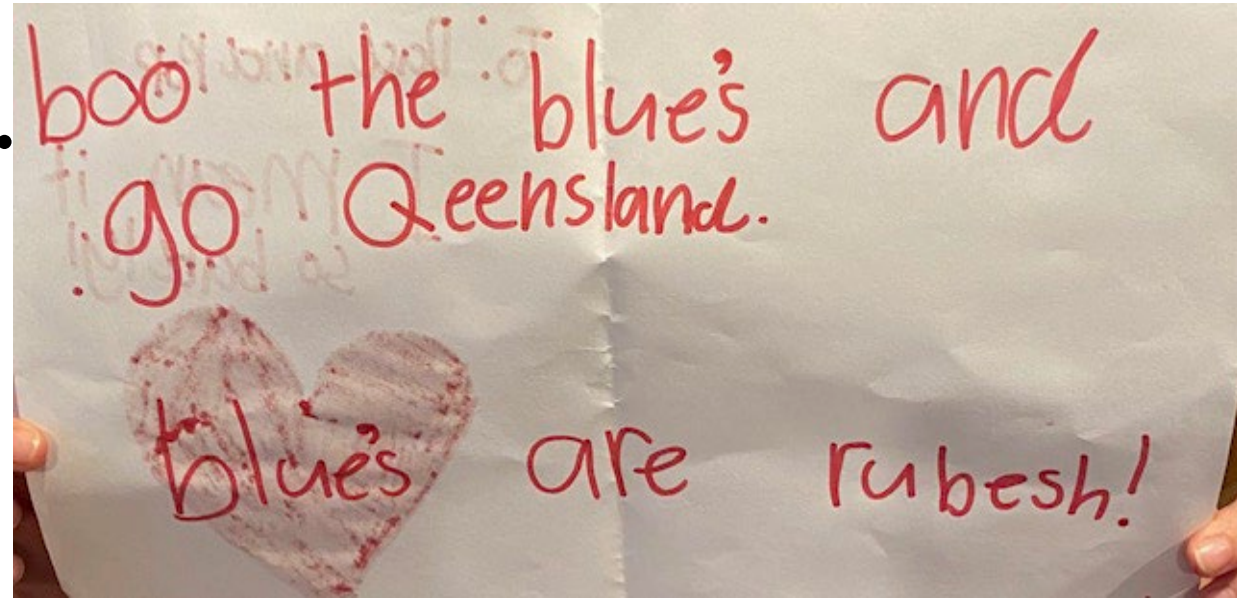 boo the blue's and
go Qeensland.
blue's are rubesh!